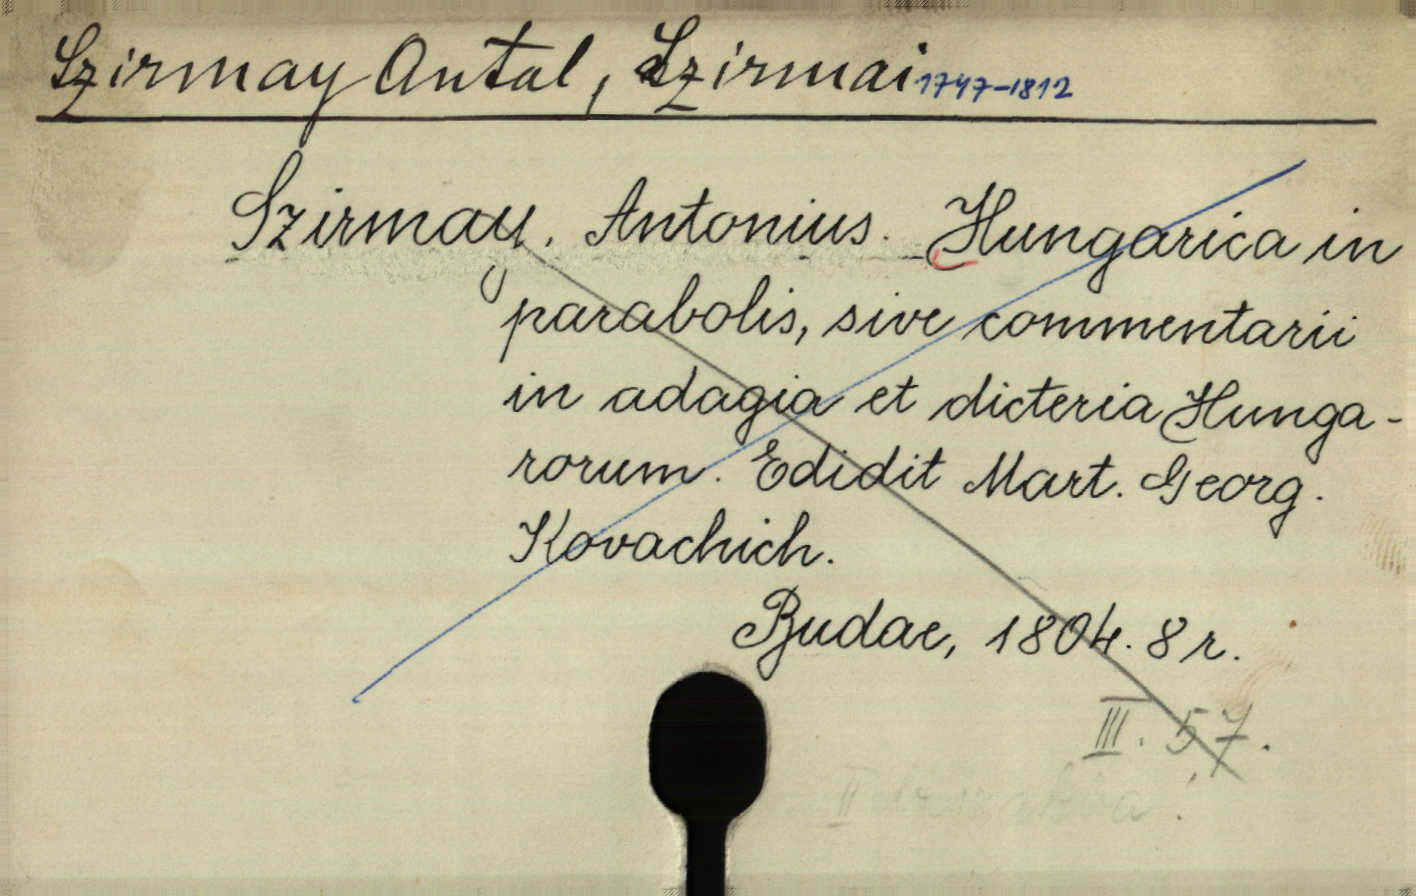 Szirmay Antal, Szirmai 1747-1812
Szirmay. Antonius. Hungarica in
parabolis, sive commentarii
in adagia et dicteria Hunga-
rorum. Edidit Mart. Georg.
Kovachich.
Budae, 1804. 8r.
III. 57.